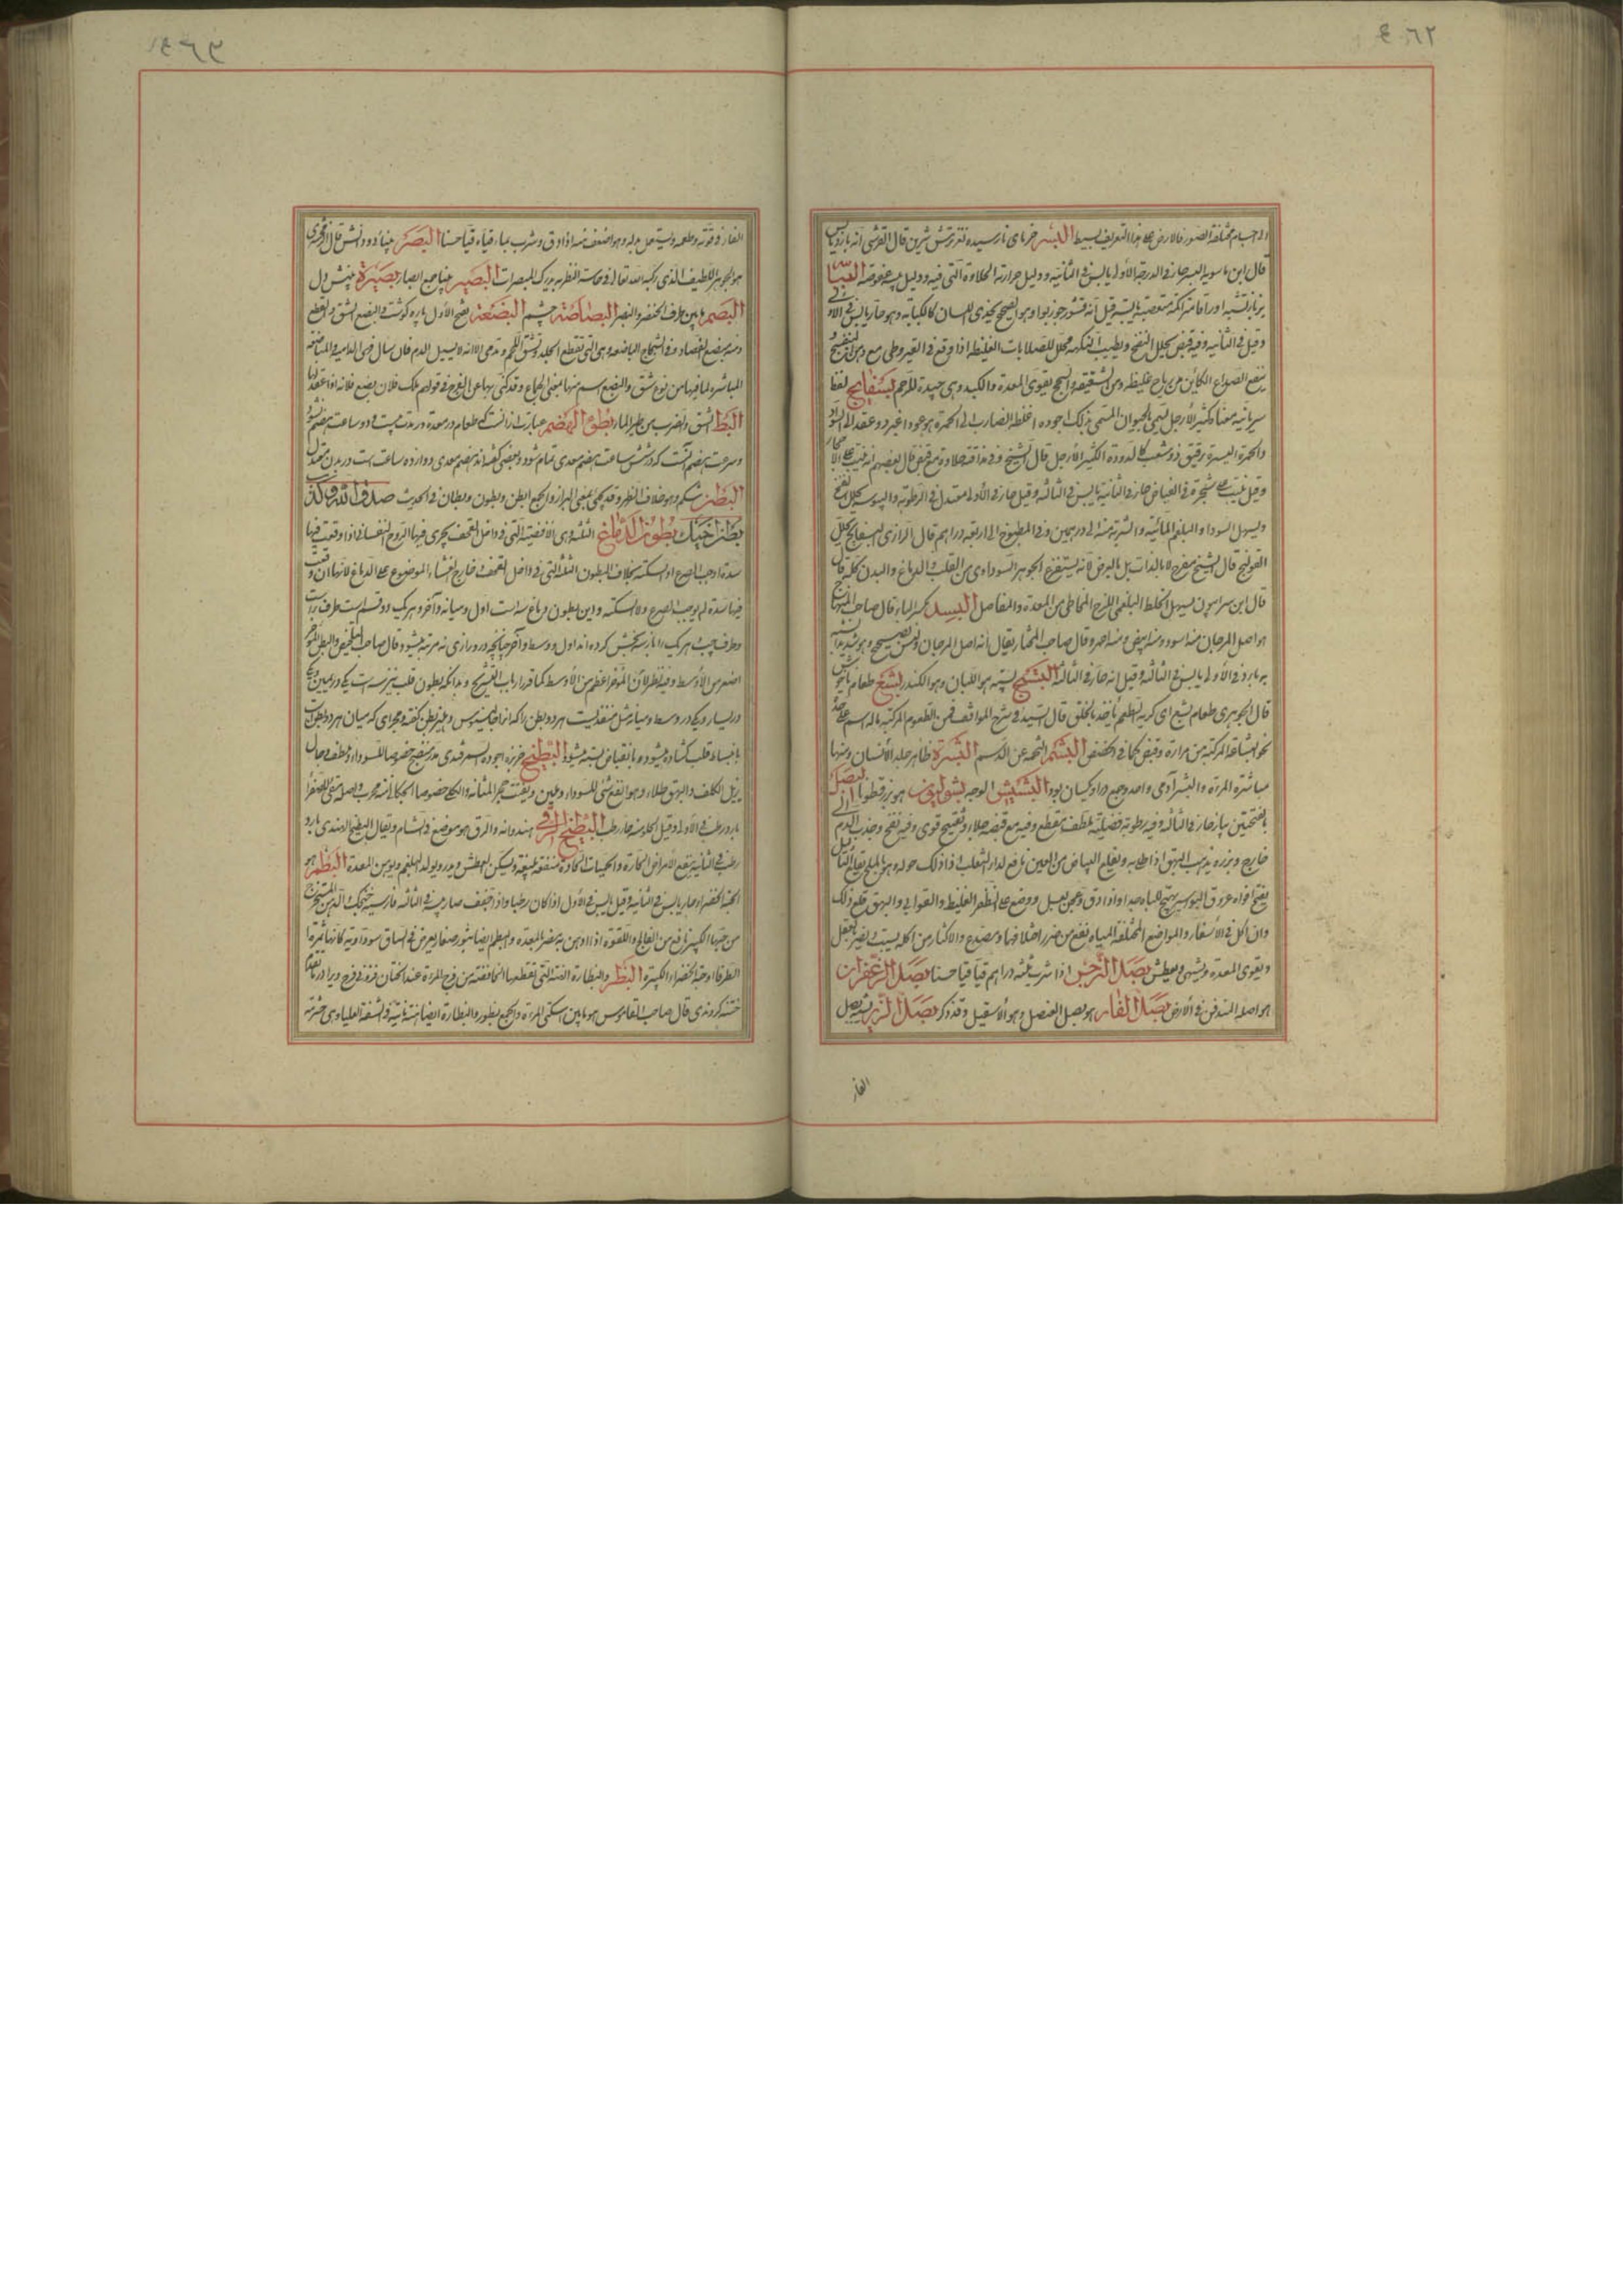 الاجسام مختلفة الصور فالارض على هذا التعريف بسيط البسر خرمای نارسیده نترترش شرین قال القرشی انه بارد یابس
قال ابن ماسویه البسر حار فی الدرجة الأولی یابس فی الثانیة ودلیل حرارته الحلاوة التی فیه ودلیل یبسه عفوصته البسباسه
وقیل فی الثانیة وفیه قبض یحلل النفخ ویطیب النکهة محلل للصلابات الغلیظة اذا وقع فی القیروطی مع دهن البنفسج
ینفع الصداع الکائن من ریاح غلیظة ومن الشقیقة والسحج یقوی المعدة والکبد وهی جیدة للرحم بسفایج لفظ
سریانیة معناه کثیر الأرجل سمی بالحیوان المسمی بذلک اجوده اغلظ الضارب الی الحمرة
والحمرة الیسیرة رقیق ذو شعب کالدودة الکثیر الأرجل قال الشیخ وفی مذاقه حلاوة مع قبض قال بعضهم انه ینبت علی الاحجار
وقیل ینبت علی شجرة فی الغیاض حار فی الثانیة یابس فی الثالثة وقیل حار فی الأولی معتدل فی الرطوبة والیبوسة یحلل النفخ
ویسهل السوداء والبلغم المائیة والشربة منه الی درهمین وفی المطبوخ الی اربعة دراهم قال الرازی البسفایج یحلل
القولنج قال الشیخ مفرح لا بالذات بل بالعرض لانه یستفرغ الجوهر السوداوی من القلب والدماغ والبدن کله
قال ابن سرابیون یسهل الخلط البلغمی اللزج المخاطی من المعدة والمفاصل البسد بکسر الباء قال صاحب المنهاج
هو اصل المرجان منه اسود ومنه ابیض ومنه احمر وقال صاحب المختار یقال انه اصل المرجان
بارد فی الأولی یابس فی الثالثة وقیل انه حار فی الثالثة البستج بسته هو اللبان وهو الکندر بشع طعام ناخوش
قال الجوهری طعام بشع ای کریه الطعم یأخذ بالحلق قال السید فی شرح المواقف من الطعوم المرکبة ماله اسم علی حدة
نحو البشاعة المرکبة من مرارة وقبض کما فی الحضض البشم التخمة عن الدسم البشرة ظاهر جلد الأنسان ومنها
مباشرة المرءة والبشر آدمی واحد وجمع دراو یکسان بود البشیش الوجه بشولیون هو بزرقطونا البصل
بالفتحتین پیاز حار فی الثالثة وفیه رطوبة فضلیة ملطف مقطع وفیه مع قبضه جلاء وتفتیح قوی وفیه نفخ وجذب الدم الی
خارج وبزره یذهب البهق اذا طلی به ویقلع البیاض من العین نافع لداء الثعلب اذا دلک حوله وهو بالملح یقلع الثآلیل
یفتح افواه عروق البواسیر یهیج للباه جدا واذا دق وعجن بعسل ووضع علی الظفر الغلیظ والقوابی والبهق قلع ذلک
وان اکل فی الأسفار والمواضع المختلفة المیاه نفع من ضرر اختلافها ومصدع والاکثار من اکله یسبت ویضر بالعقل
ویقوی المعدة ویشهی ویعطش بصل النرجس اذا شرب ثلثة دراهم قیأ قیأ حسنا بصل الزعفران
هو اصله المندفن فی الأرض بصل الفار هو بصل العنصل وهو الأسقیل وقد ذکر بصل الزیز بصل
الفار
الفار فی قوته وطعمه وهو اضعف منه اذا دق وشرب بماء قیأه قیأ حسنا البصر بینائی ودانش قال الزمخشری
هو الجوهر اللطیف الذی رکبه الله تعالی فی حاسة النظر به یدرک المبصرات البصیر بینا جمع ابصار بصیرة بینش دل
البصم مابین طرف الخنصر والبنصر البصاصة چشم البضعة بفتح الأول پاره گوشت والبضع الشق والقطع
ومنه مبضع الفصاد وفی الشجاج الباضعة وهی التی تقطع الجلد وتشق اللحم وتدمی الا انه لا یسیل الدم فان سال فهی الدامیة والمباضعة
المباشرة لما فیها من نوع شق والبضع اسم منها بمعنی الجماع وقد کنی بها عن الفرج فی قولهم ملک فلان بضع فلانة اذا عقد لها
البط الشق والضرب من طیر الماء بطوء الهضم عبارت از آنست که طعام در معده در مدت بیست و دو ساعت هضم شود
وسرعت هضم آنست که در شش ساعت هضم معدی تمام شود وبعضی گفته اند هضم معدی دوازده ساعت است در بدن معتدل
البطن شکم وهو خلاف الظهر وقد یجئ بمعنی البراز والجمع ابطن وبطون وبطنان فی الحدیث صدق الله وکذب
بطن اخیک بطون الدماغ الثلثة هی الافضیة التی فی داخل القحف یجری فیها الروح النفسانی اذا وقعت فیها
سدة اوجب الصرع او السکتة بخلاف البطون الثلثة التی فی داخل القحف خارج الغشاء الموضوع علی الدماغ لانها ان وقعت
فیها سدة لم یوجب الصرع ولا السکتة واین بطون دماغ سه است اول ومیانه وآخر وهر یک دو قسم است طرف راست
وطرف چپ هر یک را باز سه بخش کرده اند اول ووسط وآخر چنانچه در درازی نه مرتبه میشود قال صاحب التلخیص والبطن المؤخر
اصغر من الأوسط وفیه نظر لأن المؤخر اعظم من الأوسط کما قرر ارباب التشریح وبدانکه بطون قلب نیز سه است یکی در یمین ویکی
در یسار ویکی در وسط ومیانه مثل منفذیست هر دو بطن را که از جالینوس دهلیز بطن گفته ومجرای که میان هر دو بطون است
بانبساط قلب گشاده میشود وبانقباض بسته میشود البطیخ خربزه اجوده السمرقندی
یزیل الکلف والبهق طلاء وهو انفع شئ للسوداء ویلین ویفتت حجر المثانة والکلی خصوصا
بارد رطب فی الأولی وقیل الحلو منه حار رطب البطیخ الرقی هندوانه والرق هو موضع فی الشام ویقال البطیخ الهندی بارد
رطب فی الثانیة ینفع الأمراض الحارة والحمیات الحادة منفعة بلیغة ویسکن العطش ویدر ویولد البلغم ویوهن المعدة البطم هو
الحبة الخضراء حار یابس فی الثانیة وقیل یابس فی الأول اذا کان رطبا واذا جفف صار یبسه فی الثالثة
من حبها الکبیر نافع من الفالج واللقوة اذا ادهن به مضر للمعدة والبطم ایضا بثور صغار یعرض فی الساق سوداویة کانها ثمرة
الطرفاء او حبة الخضراء الکبیرة البظر والبظارة الهنة التی تقطعها الخافضة من فرج المرءة عند الختان
ختنه کردندی قال صاحب القاموس هو مابین اسکتی المرءة والجمع بظور والبظارة ایضا هنة ناتئة فی الشفة العلیا وهی حثرمة